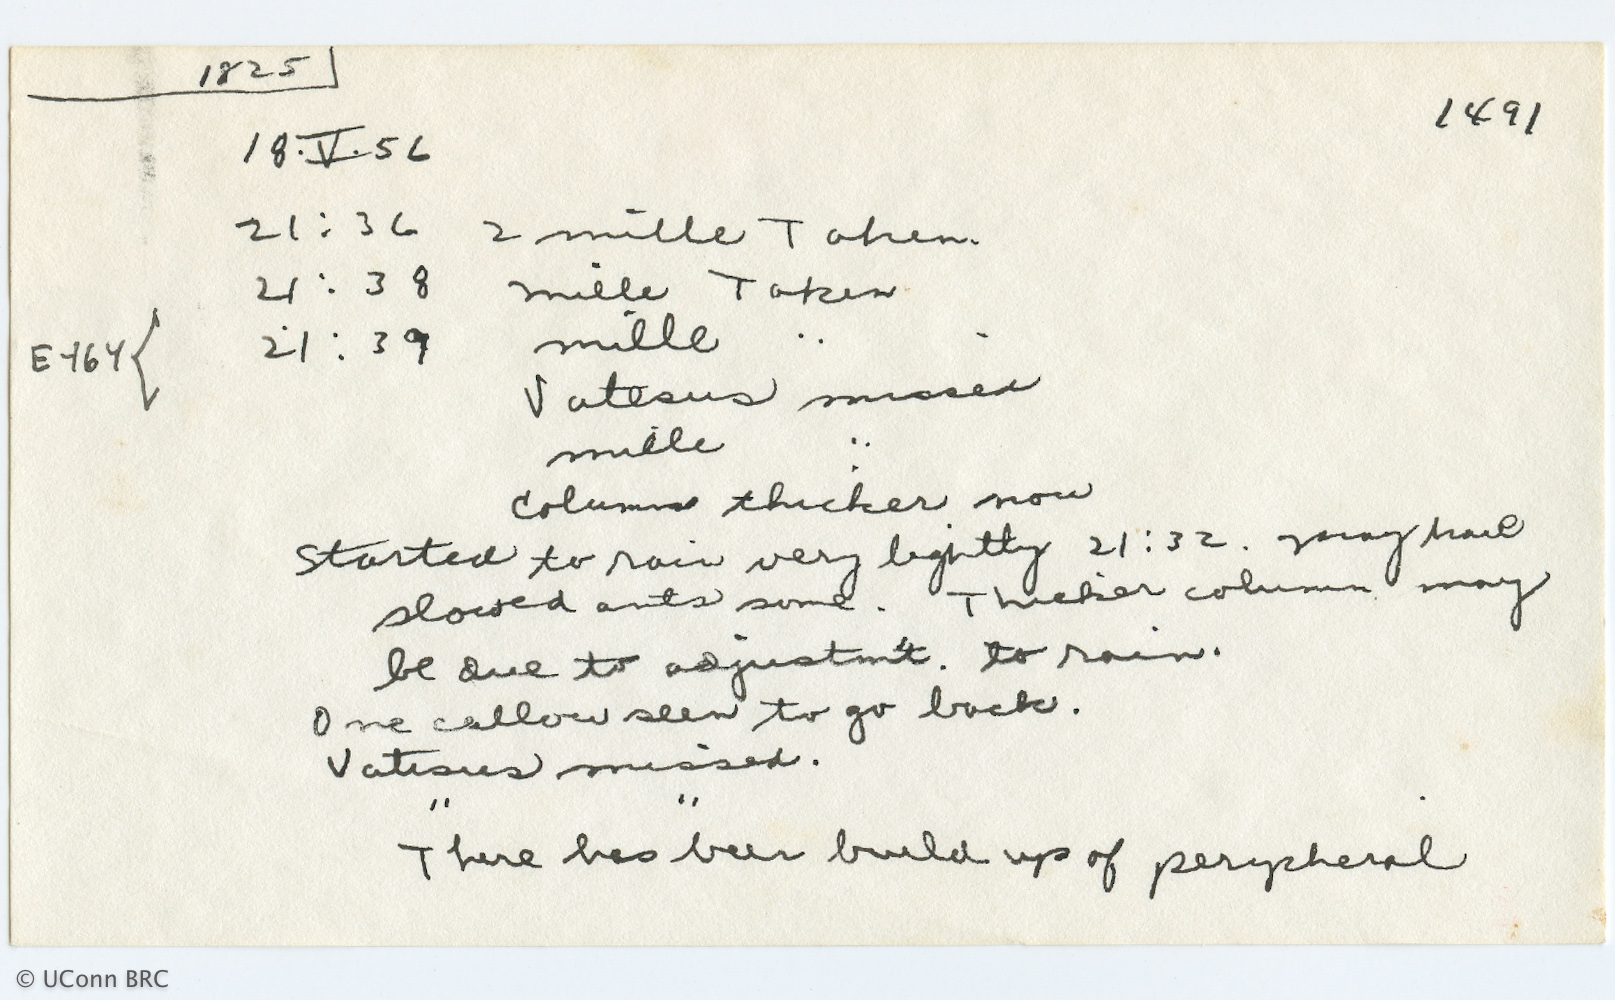 1825
1491
18.V.56
21:36 2 mille Taken.
21:38 mille Taken
E-464 { 21:39 mille "
Vatesus missed
mille "
Column thicker now
Started to rain very lightly 21:32. may have
slowed ants some. Thicker column may
be due to adjustm't. to rain.
One callow seen to go back.
Vatesus missed.
" "
There has been build up of peripheral
© UConn BRC